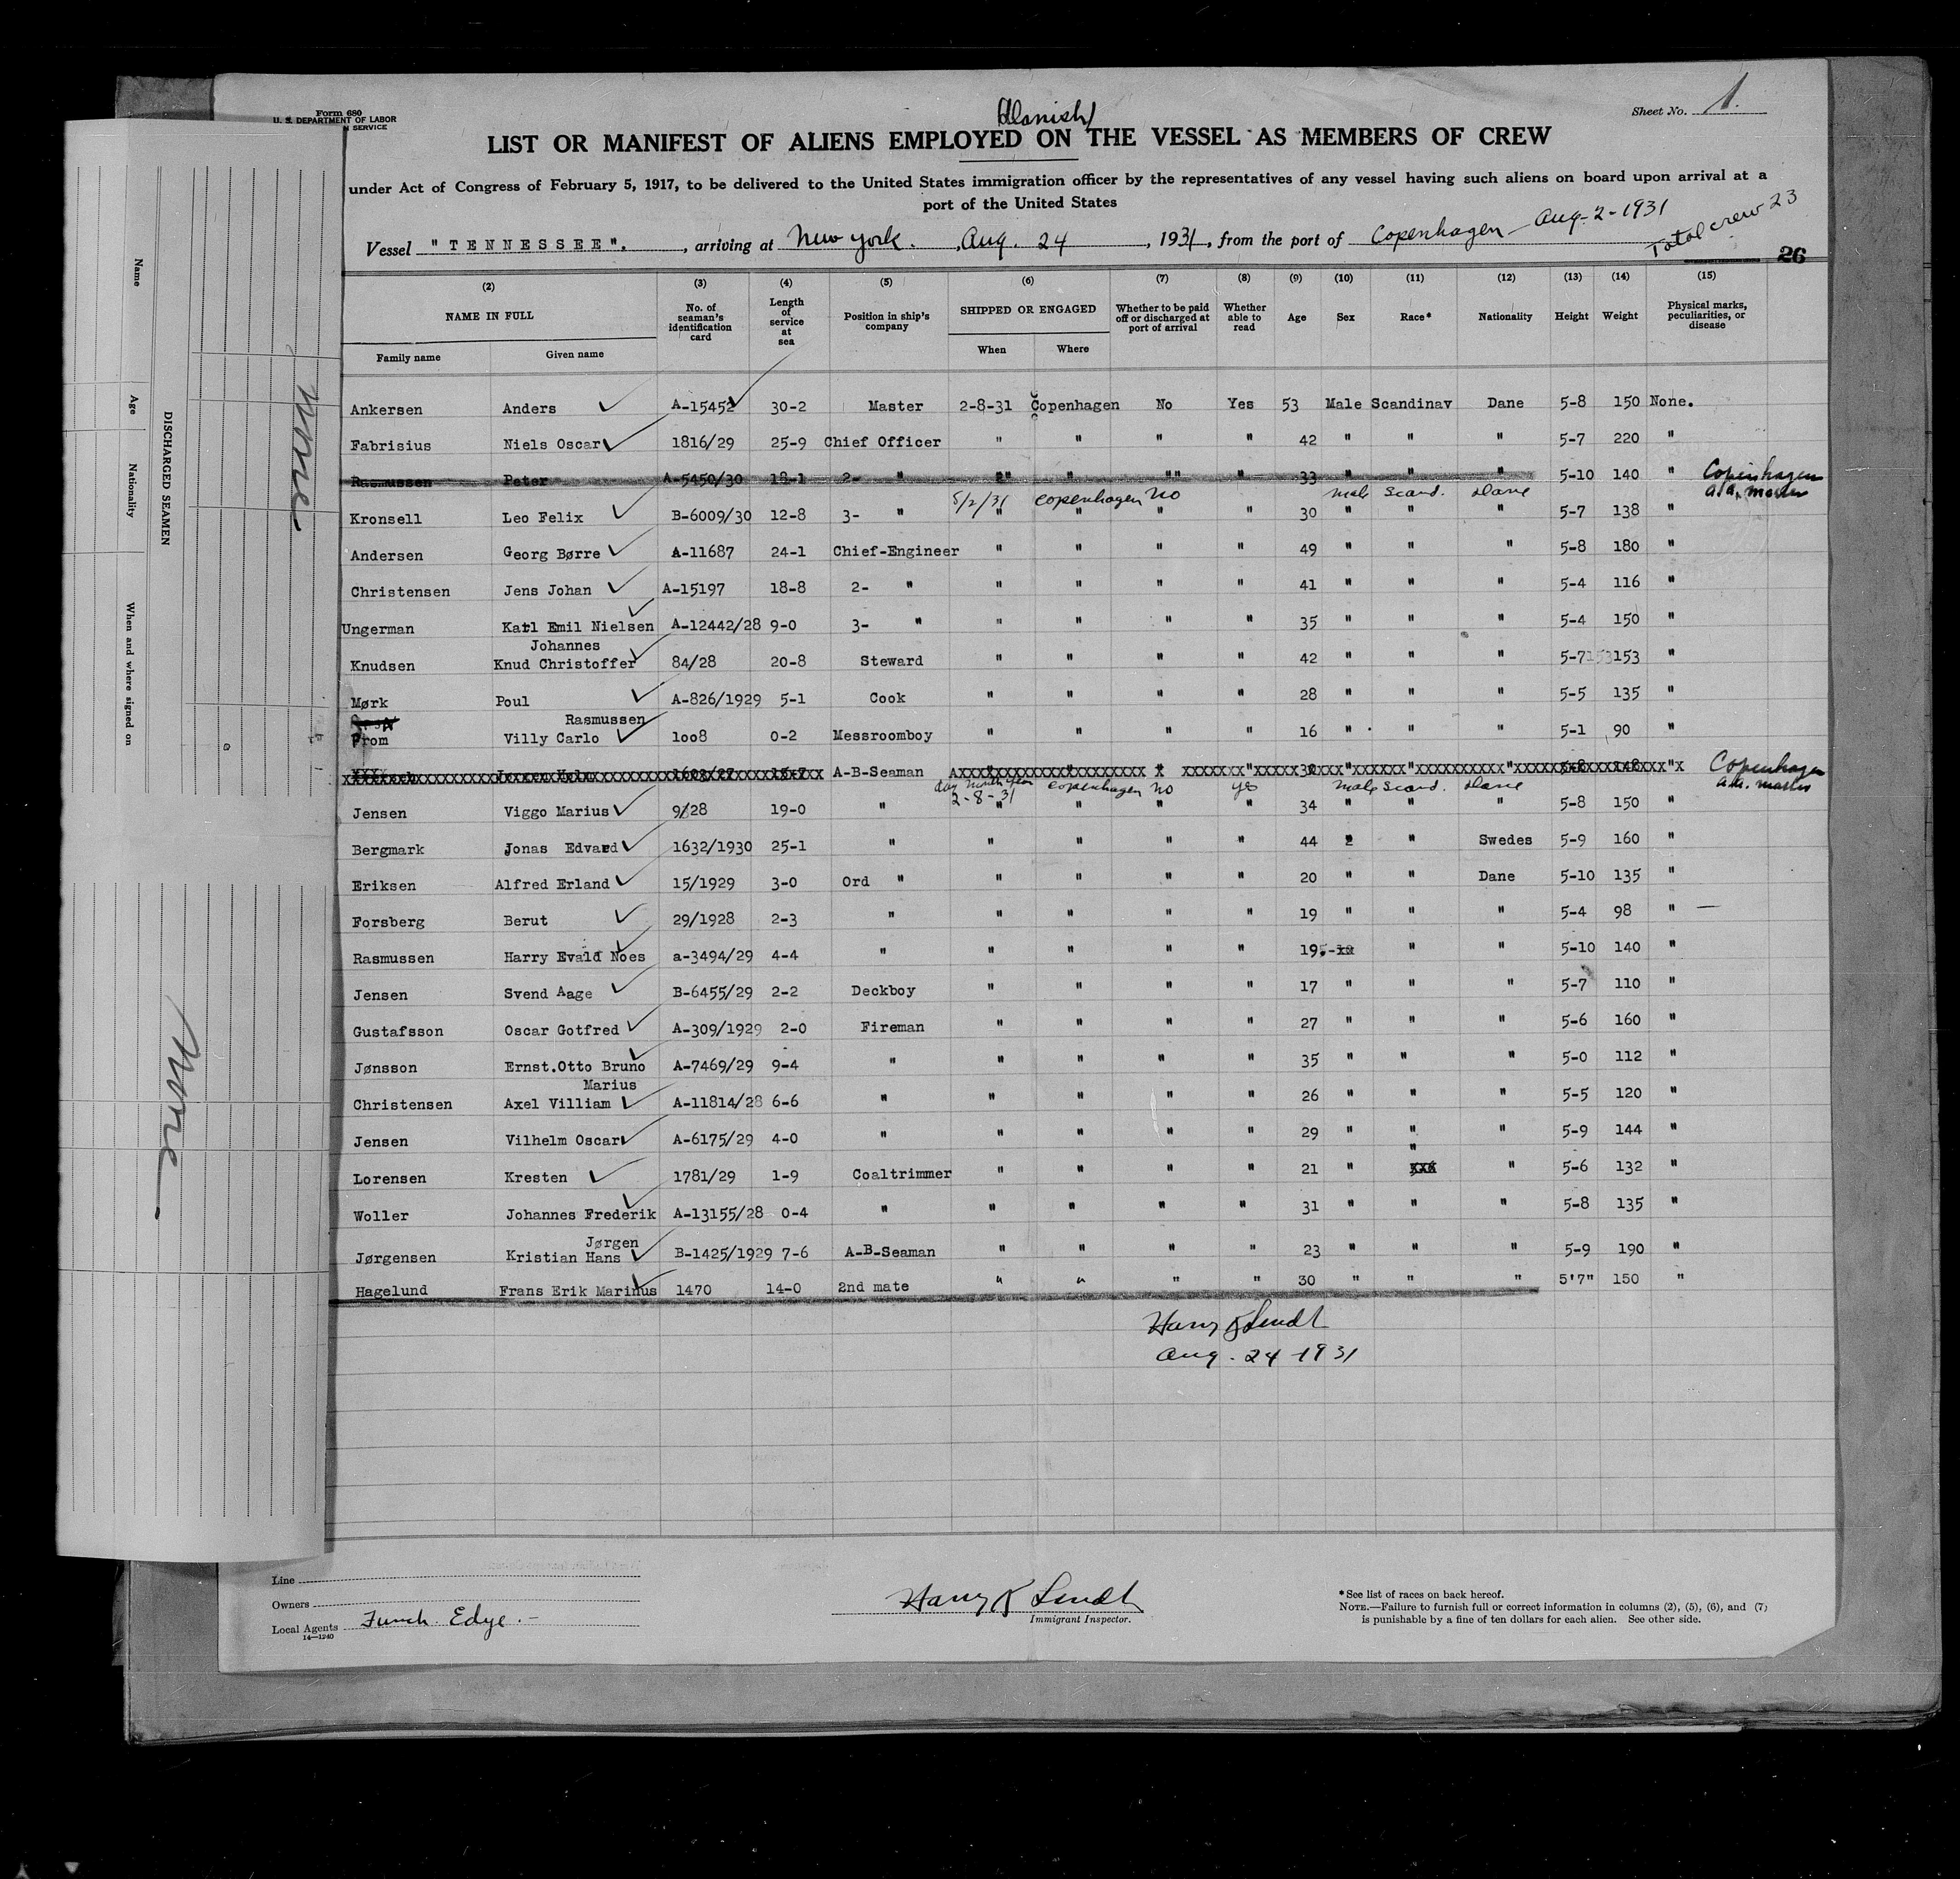 Form 680
U. S. DEPARTMENT OF LABOR
N SERVICE
(Danish)
Sheet No. 1.
LIST OR MANIFEST OF ALIENS EMPLOYED ON THE VESSEL AS MEMBERS OF CREW
under Act of Congress of February 5, 1917, to be delivered to the United States immigration officer by the representatives of any vessel having such aliens on board upon arrival at a
port of the United States
Vessel "TENNESSEE". , arriving at New York. , Aug. 24 , 1931, from the port of Copenhagen - Aug-2-1931
Total crew 23
26
(2) (3) (4) (5) (6) (7) (8) (9) (10) (11) (12) (13) (14) (15)
NAME IN FULL No. of seaman's identification card Length of service at sea Position in ship's company SHIPPED OR ENGAGED Whether to be paid off or discharged at port of arrival Whether able to read Age Sex Race* Nationality Height Weight Physical marks, peculiarities, or disease
Family name Given name When Where
Ankersen Anders A-15452 30-2 Master 2-8-31 Copenhagen No Yes 53 Male Scandinav Dane 5-8 150 None.
Fabrisius Niels Oscar 1816/29 25-9 Chief Officer " " " " 42 " " " 5-7 220 "
Rasmussen Peter A-5450/30 18-1 2- " 2" " "" " 33 " " " 5-10 140 " Copenhagen
8/2/31 Copenhagen No male Scand. Dane a/a. master
Kronsell Leo Felix B-6009/30 12-8 3- " " " " " 30 " " " 5-7 138 "
Andersen Georg Børre A-11687 24-1 Chief-Engineer " " " " 49 " " " 5-8 180 "
Christensen Jens Johan A-15197 18-8 2- " " " " " 41 " " " 5-4 116 "
Ungerman Karl Emil Nielsen A-12442/28 9-0 3- " " " " " 35 " " " 5-4 150 "
Johannes
Knudsen Knud Christoffer 84/28 20-8 Steward " " " " 42 " " " 5-7 153 153 "
Mørk Poul A-826/1929 5-1 Cook " " " " 28 " " " 5-5 135 "
Rasmussen
Prom Villy Carlo 1008 0-2 Messroomboy " " " " 16 " " " 5-1 90 "
A-B-Seaman Copenhagen
day month year 2-8-31 Copenhagen No yes male Scand. Dane a.a. master
Jensen Viggo Marius 9/28 19-0 " " " " " 34 " " " 5-8 150 "
Bergmark Jonas Edvard 1632/1930 25-1 " " " " " 44 " " Swedes 5-9 160 "
Eriksen Alfred Erland 15/1929 3-0 Ord " " " " " 20 " " Dane 5-10 135 "
Forsberg Berut 29/1928 2-3 " " " " " 19 " " " 5-4 98 " —
Rasmussen Harry Evald Noes a-3494/29 4-4 " " " " " 19 " " 5-10 140 "
Jensen Svend Aage B-6455/29 2-2 Deckboy " " " " 17 " " " 5-7 110 "
Gustafsson Oscar Gotfred A-309/1929 2-0 Fireman " " " " 27 " " " 5-6 160 "
Jønsson Ernst.Otto Bruno A-7469/29 9-4 " " " " " 35 " " " 5-0 112 "
Marius
Christensen Axel Villiam A-11814/28 6-6 " " " " " 26 " " " 5-5 120 "
Jensen Vilhelm Oscar A-6175/29 4-0 " " " " " 29 " " " 5-9 144 "
Lorensen Kresten 1781/29 1-9 Coaltrimmer " " " " 21 " " " 5-6 132 "
Woller Johannes Frederik A-13155/28 0-4 " " " " " 31 " " " 5-8 135 "
Jørgen
Jørgensen Kristian Hans B-1425/1929 7-6 A-B-Seaman " " " " 23 " " " 5-9 190 "
Hagelund Frans Erik Marinus 1470 14-0 2nd mate " " " " 30 " " " 5'7" 150 "
Harry K Lendt
Aug. 24 1931
Line
Owners
Local Agents Funch. Edye. -
14-1240
Harry K Lendt
Immigrant Inspector.
*See list of races on back hereof.
NOTE.—Failure to furnish full or correct information in columns (2), (5), (6), and (7)
is punishable by a fine of ten dollars for each alien. See other side.
DISCHARGED SEAMEN
Name
Age
Nationality
When and where signed on
None
None